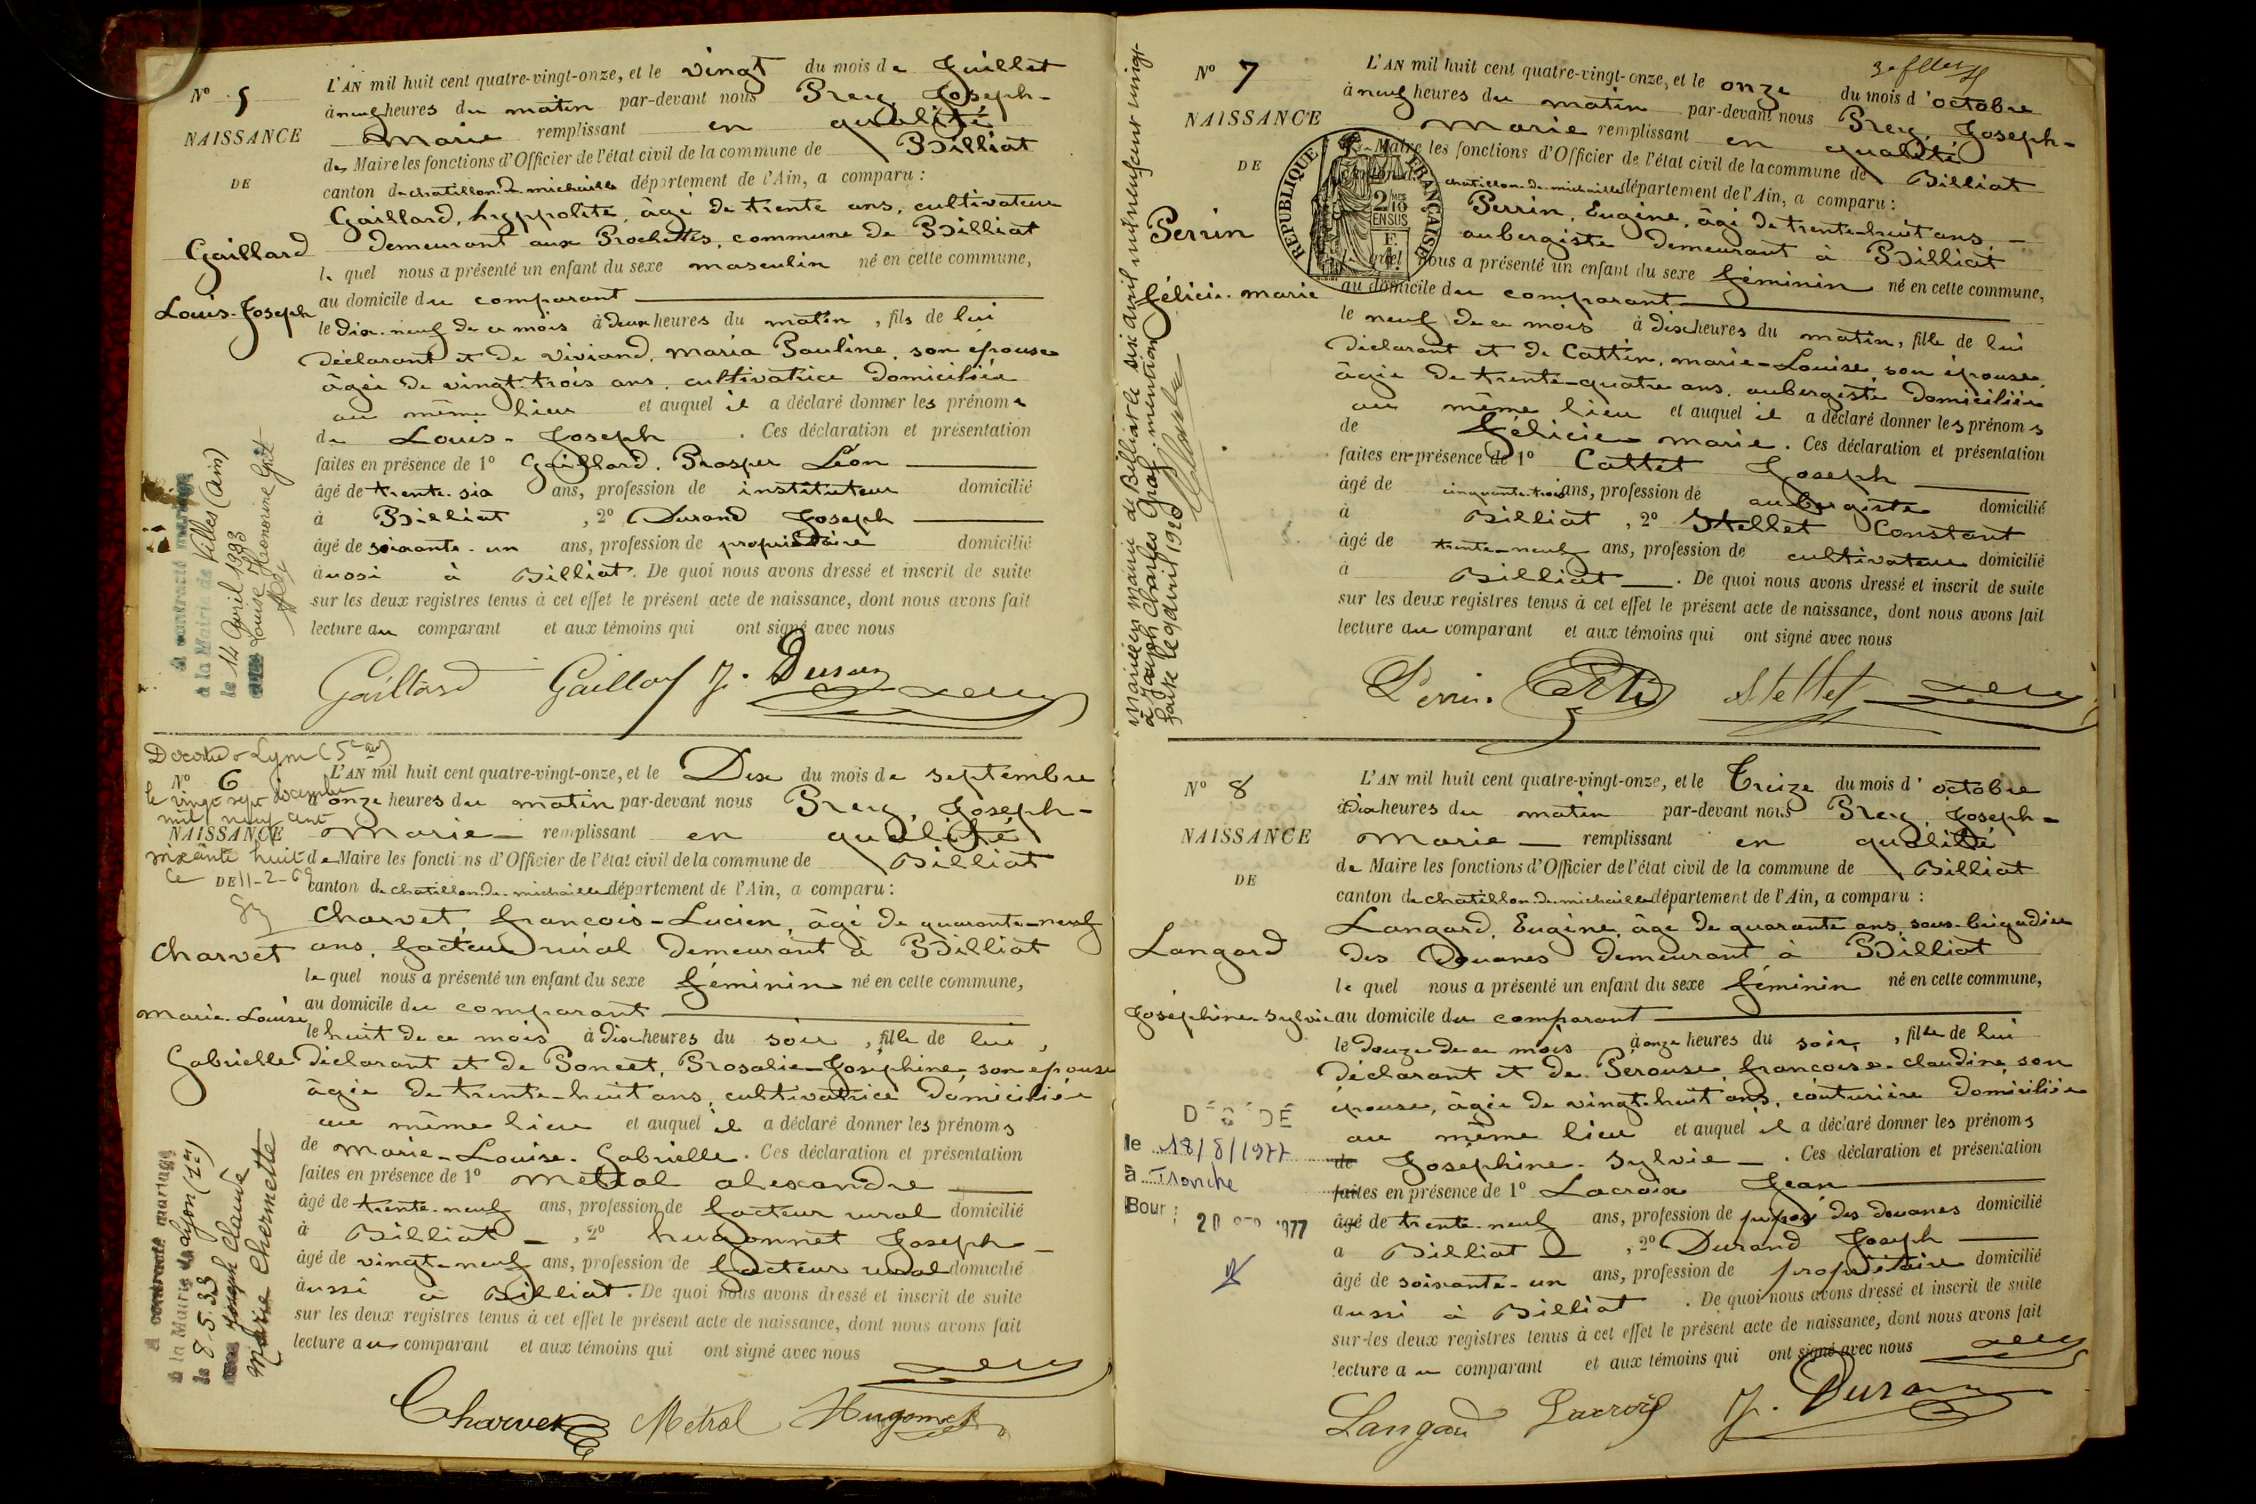 N° 5
NAISSANCE
DE
Gaillard
Louis-Joseph
L'AN mil huit cent quatre-vingt-onze, et le vingt du mois de Juillet
à neuf heures du matin par-devant nous Prey, Joseph-
Marie remplissant en qualité
de Maire les fonctions d'Officier de l'état civil de la commune de Billiat
canton de chatillon-de-michaille département de l'Ain, a comparu :
Gaillard, hyppolite, âgé de trente ans, cultivateur
demeurant aux Rochettes, commune de Billiat
lequel nous a présenté un enfant du sexe masculin né en cette commune,
au domicile du comparant
le dix-neuf de ce mois à deux heures du matin, fils de lui
déclarant et de Viviand, maria Pauline, son épouse
âgée de vingt-trois ans, cultivatrice domiciliée
au même lieu et auquel il a déclaré donner les prénoms
de Louis-Joseph. Ces déclaration et présentation
faites en présence de 1° Gaillard, Prosper Léon
âgé de trente-six ans, profession de instituteur domicilié
à Billiat, 2° Durand Joseph
âgé de soixante-un ans, profession de propriétaire domicilié
aussi à Billiat. De quoi nous avons dressé et inscrit de suite
sur les deux registres tenus à cet effet le présent acte de naissance, dont nous avons fait
lecture au comparant et aux témoins qui ont signé avec nous
Gaillard Gaillard J. Durand Prey
A contracté mariage
à la Mairie de Villes (Ain)
le 14 Avril 1933
avec Louise Honorine
Décédée à Lyon (5e arr)
le vingt sept décembre
mil neuf cent
soixante huit
Le 11-2-69
N° 6
NAISSANCE
DE
Charvet
Marie-Louise
Gabrielle
L'AN mil huit cent quatre-vingt-onze, et le Dix du mois de septembre
à onze heures du matin par-devant nous Prey, Joseph-
Marie remplissant en qualité
de Maire les fonctions d'Officier de l'état civil de la commune de Billiat
canton de chatillon-de-michaille département de l'Ain, a comparu :
Charvet, françois-Lucien, âgé de quarante-neuf
ans, facteur rural demeurant à Billiat
lequel nous a présenté un enfant du sexe féminin né en cette commune,
au domicile du comparant
le huit de ce mois à dix heures du soir, fille de lui,
déclarant et de Poncet, Rosalie-Joséphine, son épouse
âgée de trente-huit ans, cultivatrice domiciliée
au même lieu et auquel il a déclaré donner les prénoms
de Marie-Louise-Gabrielle. Ces déclaration et présentation
faites en présence de 1° Métral alexandre
âgé de trente-neuf ans, profession de facteur rural domicilié
à Billiat, 2° hugonnet Joseph
âgé de vingt-neuf ans, profession de facteur rural domicilié
aussi à Billiat. De quoi nous avons dressé et inscrit de suite
sur les deux registres tenus à cet effet le présent acte de naissance, dont nous avons fait
lecture au comparant et aux témoins qui ont signé avec nous
Charvet Metral Hugonnet Prey
A contracté mariage
à la Mairie de Lyon (1er)
le 8.5.33
avec Joseph Claude
Marie Chermette
N° 7
NAISSANCE
DE
Perrin
Félicie-Marie
L'AN mil huit cent quatre-vingt-onze, et le onze du mois d'octobre
à neuf heures du matin par-devant nous Prey, Joseph-
Marie remplissant en qualité
de Maire les fonctions d'Officier de l'état civil de la commune de Billiat
canton de chatillon-de-michaille département de l'Ain, a comparu :
Perrin, Eugène, âgé de trente-huit ans,
aubergiste demeurant à Billiat
lequel nous a présenté un enfant du sexe féminin né en cette commune,
au domicile du comparant
le neuf de ce mois à dix heures du matin, fille de lui
déclarant et de Cattin, marie-Louise, son épouse,
âgée de trente-quatre ans, aubergiste domiciliée
au même lieu et auquel il a déclaré donner les prénoms
de Félicie marie. Ces déclaration et présentation
faites en présence de 1° Cattet Joseph
âgé de cinquante-trois ans, profession de aubergiste domicilié
à Billiat, 2° Stellet Constant
âgé de trente-neuf ans, profession de cultivateur domicilié
à Billiat. De quoi nous avons dressé et inscrit de suite
sur les deux registres tenus à cet effet le présent acte de naissance, dont nous avons fait
lecture au comparant et aux témoins qui ont signé avec nous
Perrin Stellet Prey
REPUBLIQUE FRANÇAISE
2/10 MES
EN SUS
Mariée en mairie de Billiat le six avril mil neuf cent vingt
à Joseph Charles Graf mention
faite le 9 avril 1920
N° 8
NAISSANCE
DE
Langard
Joséphine-Sylvie
L'AN mil huit cent quatre-vingt-onze, et le Treize du mois d'octobre
à Dix heures du matin par-devant nous Prey, Joseph-
Marie remplissant en qualité
de Maire les fonctions d'Officier de l'état civil de la commune de Billiat
canton de chatillon-de-michaille département de l'Ain, a comparu :
Langard, Eugène, âgé de quarante ans, sous-brigadier
des Douanes demeurant à Billiat
lequel nous a présenté un enfant du sexe féminin né en cette commune,
au domicile du comparant
le douze de ce mois à onze heures du soir, fille de lui
déclarant et de Pérouse, françoise-claudine, son
épouse, âgée de vingt-huit ans, couturière domiciliée
au même lieu et auquel il a déclaré donner les prénoms
de Joséphine-Sylvie. Ces déclaration et présentation
faites en présence de 1° Lacroix Jean
âgé de trente-neuf ans, profession de préposé des douanes domicilié
à Billiat, 2° Durand Joseph
âgé de soixante-un ans, profession de propriétaire domicilié
aussi à Billiat. De quoi nous avons dressé et inscrit de suite
sur les deux registres tenus à cet effet le présent acte de naissance, dont nous avons fait
lecture au comparant et aux témoins qui ont signé avec nous
Langard Lacroix J. Durand Prey
DÉCÉDÉ
le 18/8/1977
à Tronche
Bour
1977